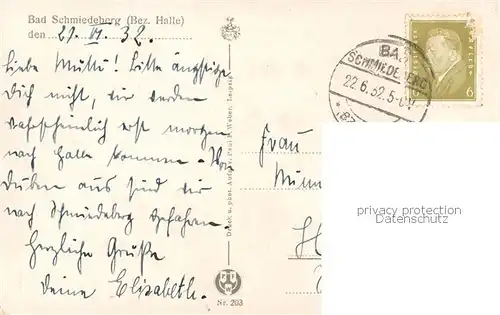 Bad Schmiedeberg (Bez. Halle)
den 21. VI. 32.
Liebe Mutti! Bitte ängstige
Dich nicht, wir werden
wahrscheinlich erst morgen
nach Halle kommen. Von
Düben aus sind wir
nach Schmiedeberg gefahren.
Herzliche Grüße
Deine Elisabeth.
Druck u. phot. Aufn. Paul F. Weber, Leipzig
Nr. 203
BAD
SCHMIEDEBERG
22.6.32.5-6
6
Frau
privacy protection
Datenschutz